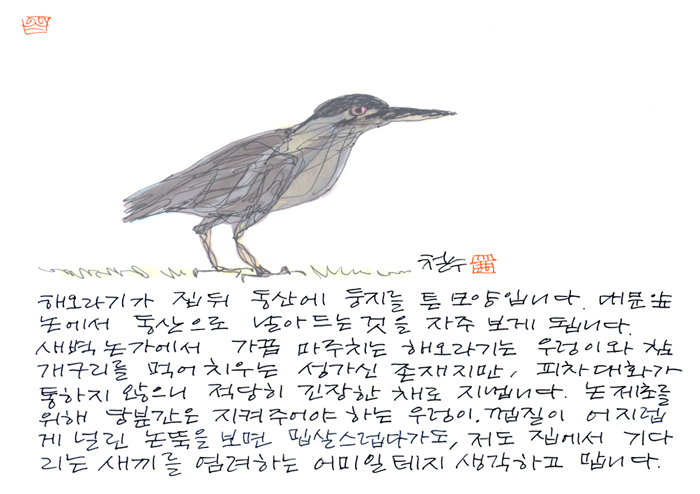 철수
해오라기가 집 뒤 동산에 둥지를 튼 모양입니다. 대문앞
논에서 동산으로 날아드는 것을 자주 보게 됩니다.
새벽 논가에서 가끔 마주치는 해오라기는 우렁이와 참
개구리를 먹어 치우는 성가신 존재지만, 피차 대화가
통하지 않으니 적당히 긴장한 채로 지냅니다. 논 제초를
위해 당분간은 지켜주어야 하는 우렁이. 껍질이 어지럽
게 널린 논뚝을 보면 밉살스럽다가도, 저도 집에서 기다
리는 새끼를 염려하는 어미일테지 생각하고 맙니다.